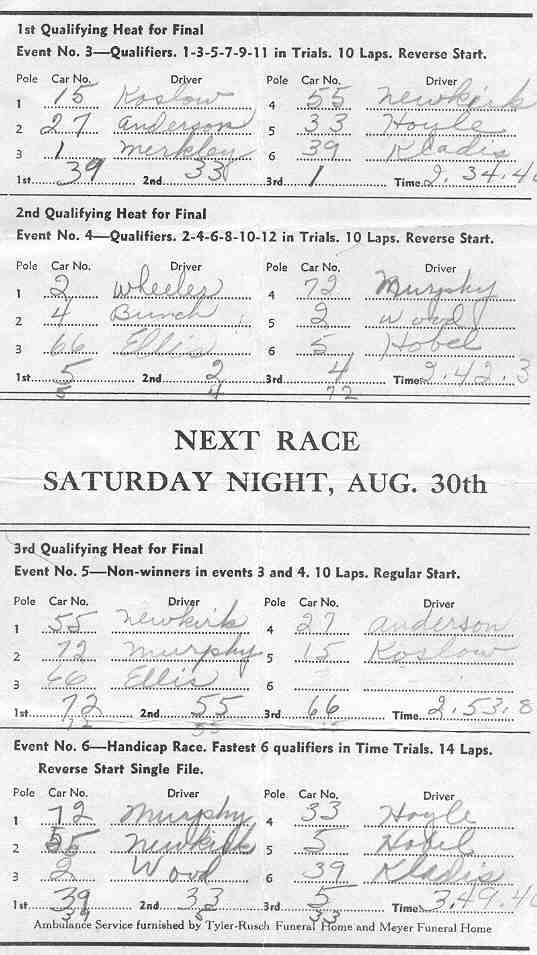 1st Qualifying Heat for Final
Event No. 3—Qualifiers. 1-3-5-7-9-11 in Trials. 10 Laps. Reverse Start.
Pole Car No. Driver Pole Car No. Driver
1 15 Koslow 4 55 Newkirk
2 27 Anderson 5 33 Hoyle
3 1 Merkley 6 39 Kladis
1st 39 2nd 33 3rd 1 Time 2.34.4
2nd Qualifying Heat for Final
Event No. 4—Qualifiers. 2-4-6-8-10-12 in Trials. 10 Laps. Reverse Start.
Pole Car No. Driver Pole Car No. Driver
1 2 Wheeler 4 72 Murphy
2 4 Bunch 5 2 Wood
3 66 Ellis 6 5 Hobel
1st 5 2nd 2 3rd 4 Time 2.42.3
5 4 72
NEXT RACE
SATURDAY NIGHT, AUG. 30th
3rd Qualifying Heat for Final
Event No. 5—Non-winners in events 3 and 4. 10 Laps. Regular Start.
Pole Car No. Driver Pole Car No. Driver
1 55 Newkirk 4 27 Anderson
2 72 Murphy 5 15 Koslow
3 66 Ellis 6
1st 72 2nd 55 3rd 66 Time 2.53.8
Event No. 6—Handicap Race. Fastest 6 qualifiers in Time Trials. 14 Laps.
Reverse Start Single File.
Pole Car No. Driver Pole Car No. Driver
1 72 Murphy 4 33 Hoyle
2 55 Newkirk 5 5 Hobel
3 2 Wood 6 39 Kladis
1st 39 2nd 33 3rd 5 Time 3.49.4
39 5 33
Ambulance Service furnished by Tyler-Rusch Funeral Home and Meyer Funeral Home